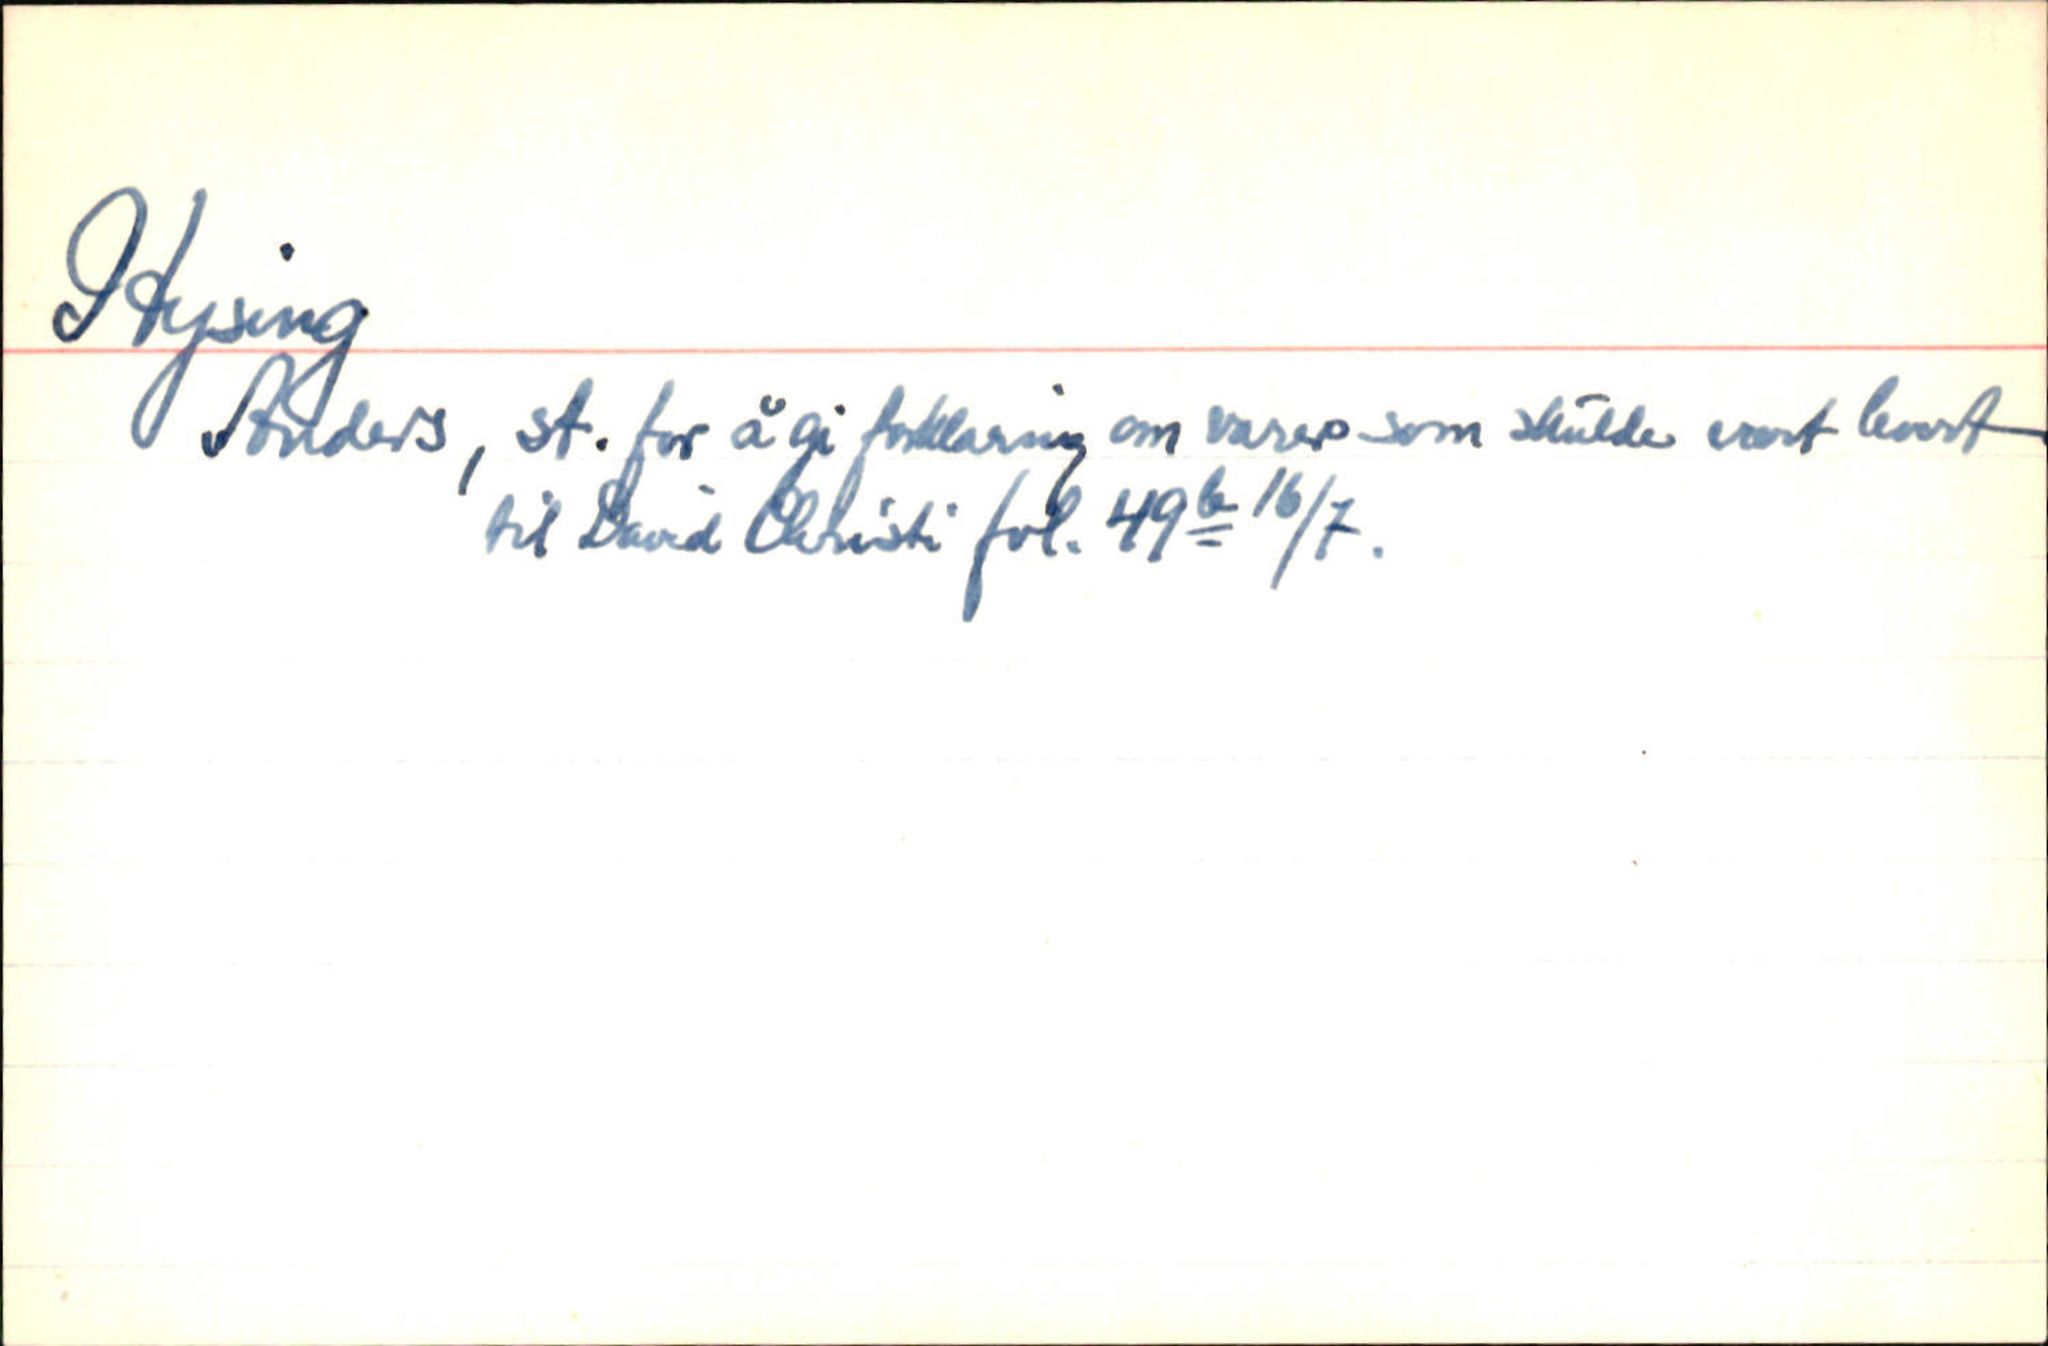 Hysing
Anders, st. for å gi forklaring om varer som skulde vært levert
til David Christi fol. 49b 16/7.